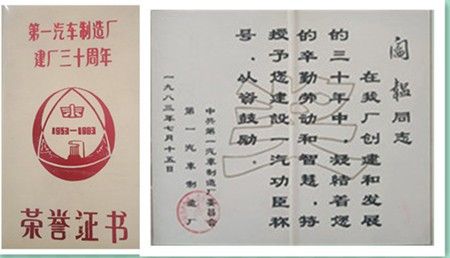 第一汽车制造厂
建厂三十周年
1953-1983
荣誉证书
奖
阎 同志
在我厂创建和发展
的三十年中,凝结着您
的辛勤劳动和智慧,特
授予您建设一汽功臣称
号,以资鼓励。
中共第一汽车制造厂委员会
第一汽车制造厂
一九八三年七月十五日